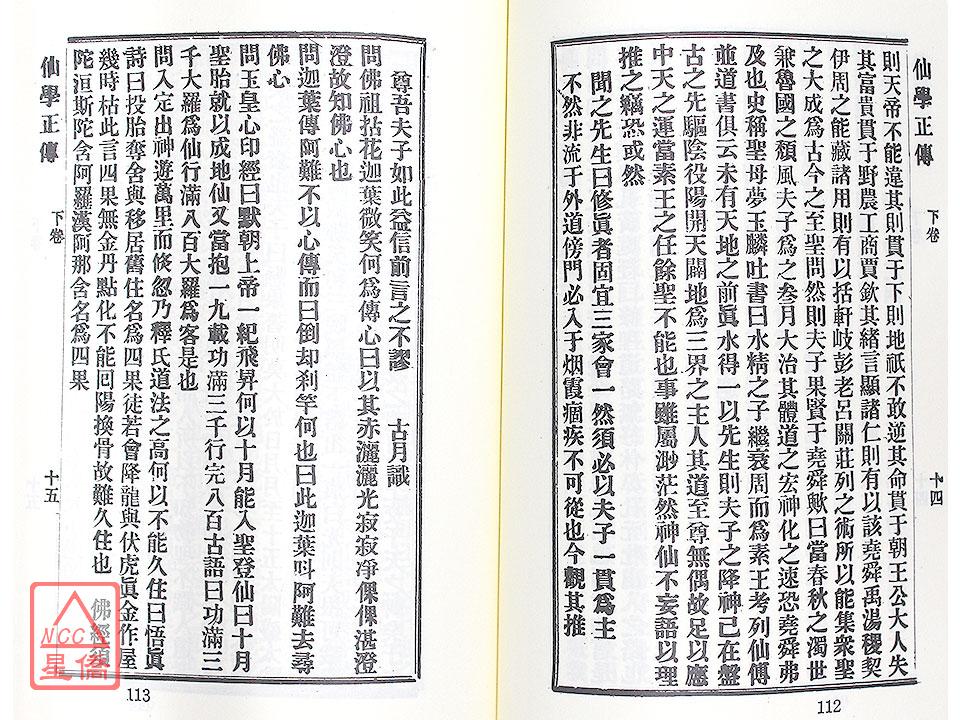 仙學正傳
下卷
十四
則天帝不能違其則貫于下則地祇不敢逆其命貫于朝王公大人失
其富貴貫于野農工商賈欽其緒言顯諸仁則有以該堯舜禹湯稷契
伊周之能藏諸用則有以括軒岐彭老呂關莊列之術所以能集衆聖
之大成爲古今之至聖問然則夫子果賢于堯舜歟曰當春秋之濁世
兼魯國之頹風夫子爲之叁月大治其體道之宏神化之速恐堯舜弗
及也史稱聖母夢玉麟吐書曰水精之子繼衰周而爲素王考列仙傳
並道書俱云未有天地之前眞水得一以先生則夫子之降神已在盤
古之先驅陰役陽開天闢地爲三界之主人其道至尊無偶故足以應
中天之運當素王之任餘聖不能也事雖屬渺茫然神仙不妄語以理
推之竊恐或然
聞之先生曰修眞者固宜三家會一然須必以夫子一貫爲主
不然非流于外道傍門必入于烟霞痼疾不可從也今觀其推
112
仙學正傳
下卷
十五
尊吾夫子如此益信前言之不謬 古月識
問佛祖拈花迦葉微笑何爲傳心曰以其赤灑灑光寂寂凈倮倮湛澄
澄故知佛心也
問迦葉傳阿難不以心傳而曰倒却刹竿何也曰此迦葉呌阿難去尋
佛心
問玉皇心印經曰默朝上帝一紀飛昇何以十月能入聖登仙曰十月
聖胎就以成地仙又當抱一九載功滿三千行完八百古語曰功滿三
千大羅爲仙行滿八百大羅爲客是也
問入定出神遊萬里而倏忽乃釋氏道法之高何以不能久住曰悟眞
詩曰投胎奪舍與移居舊住名爲四果徒若會降龍與伏虎眞金作屋
幾時枯此言四果無金丹點化不能回陽換骨故難久住也 佛經須
陀洹斯陀含阿羅漢阿那含名爲四果
113
NCC
星僑